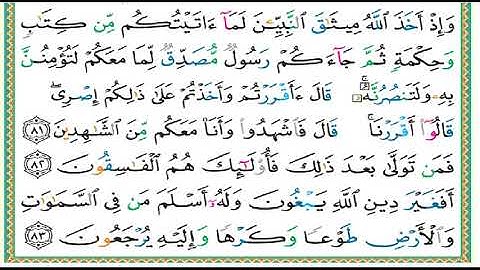 وَإِذْ أَخَذَ ٱللَّهُ مِيثَٰقَ ٱلنَّبِيِّۦنَ لَمَآ ءَاتَيْتُكُم مِّن كِتَٰبٍ
وَحِكْمَةٍ ثُمَّ جَآءَكُمْ رَسُولٌ مُّصَدِّقٌ لِّمَا مَعَكُمْ لَتُؤْمِنُنَّ
بِهِۦ وَلَتَنصُرُنَّهُۥ ۚ قَالَ ءَأَقْرَرْتُمْ وَأَخَذْتُمْ عَلَىٰ ذَٰلِكُمْ إِصْرِى ۖ
قَالُوٓا۟ أَقْرَرْنَا ۚ قَالَ فَٱشْهَدُوا۟ وَأَنَا۠ مَعَكُم مِّنَ ٱلشَّٰهِدِينَ ٨١
فَمَن تَوَلَّىٰ بَعْدَ ذَٰلِكَ فَأُو۟لَٰٓئِكَ هُمُ ٱلْفَٰسِقُونَ ٨٢
أَفَغَيْرَ دِينِ ٱللَّهِ يَبْغُونَ وَلَهُۥٓ أَسْلَمَ مَن فِى ٱلسَّمَٰوَٰتِ
وَٱلْأَرْضِ طَوْعًا وَكَرْهًا وَإِلَيْهِ يُرْجَعُونَ ٨٣